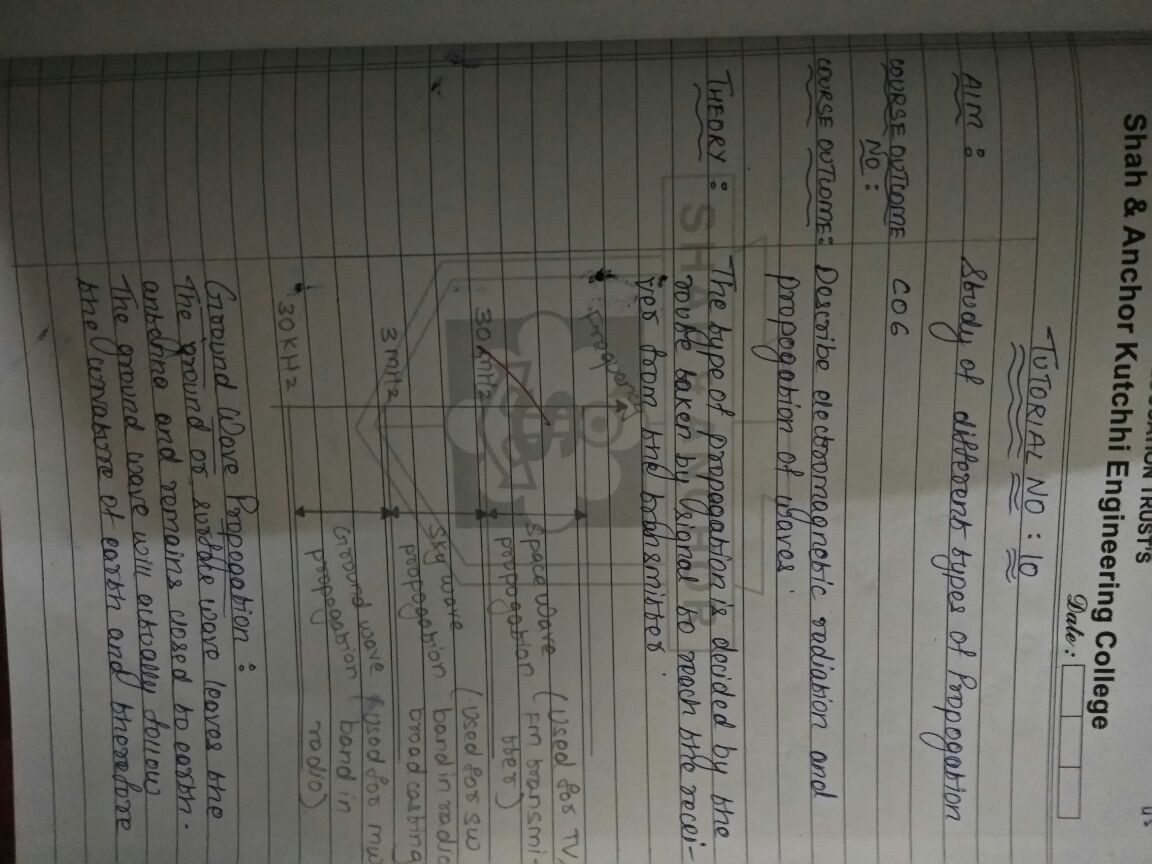 TRUST'S
Shah & Anchor Kutchhi Engineering College
Date :
TUTORIAL NO : 10
AIM : Study of different types of Propogation
COURSE OUTCOME NO : CO6
COURSE OUTCOME : Describe electromagnetic radiation and
propogation of waves.
THEORY : The type of propogation is decided by the
route taken by signal to reach the recei-
ver from the transmitter.
SHAH & ANCHOR
Frequency
Space wave (Used for TV,
propogation FM transmi-
tter)
30 MHz
Sky wave (Used for SW
propogation band in radio
broadcasting
3 MHz
Ground wave (Used for MW
propogation band in
radio)
30 KHz
Ground Wave Propogation :
The ground or surface wave leaves the
antenna and remains closed to earth.
The ground wave will actually follow
the curvature of earth and therefore